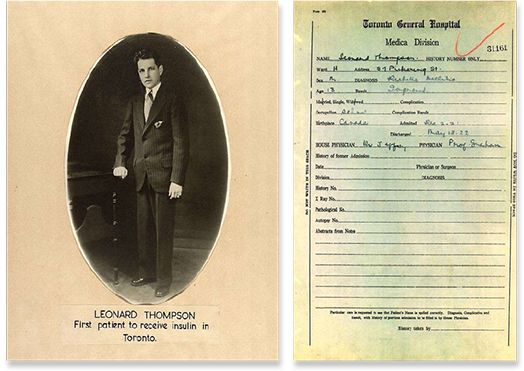 LEONARD THOMPSON
First patient to receive insulin in
Toronto.
Toronto General Hospital
Medica Division
31161
NAME Leonard Thompson HISTORY NUMBER ONLY
Ward H Address 87 Pickering St.
Sex M. DIAGNOSIS Diabetes Mellitus
Age 13 Result Improved
Married, Single, Widowed Complication
Occupation School Complication Result
Birthplace Canada Admitted Dec. 2. 21
Discharged May 15. 22
HOUSE PHYSICIAN PHYSICIAN Prof Graham
History of former Admission
Date Physician or Surgeon
Division DIAGNOSIS
History No.
X Ray No.
Pathological No.
Autopsy No.
Abstracts from Notes
Particular care is requested to see that Patient's Name is spelled correctly. Diagnosis, Complication and
Result, with history of previous admission to be filled in by House Physician.
History taken by